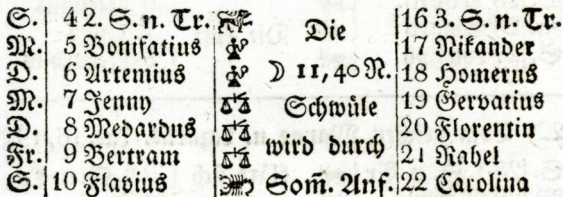 S. 4 2. S. n. Tr. Die 16 3. S. n. Tr.
M. 5 Bonifatius 17 Nikander
D. 6 Artemius ☽ 11,40 N. 18 Homerus
M. 7 Jenny Schwüle 19 Gervatius
D. 8 Medardus wird durch 20 Florentin
Fr. 9 Bertram 21 Rahel
S. 10 Flavius Som̃. Anf. 22 Carolina